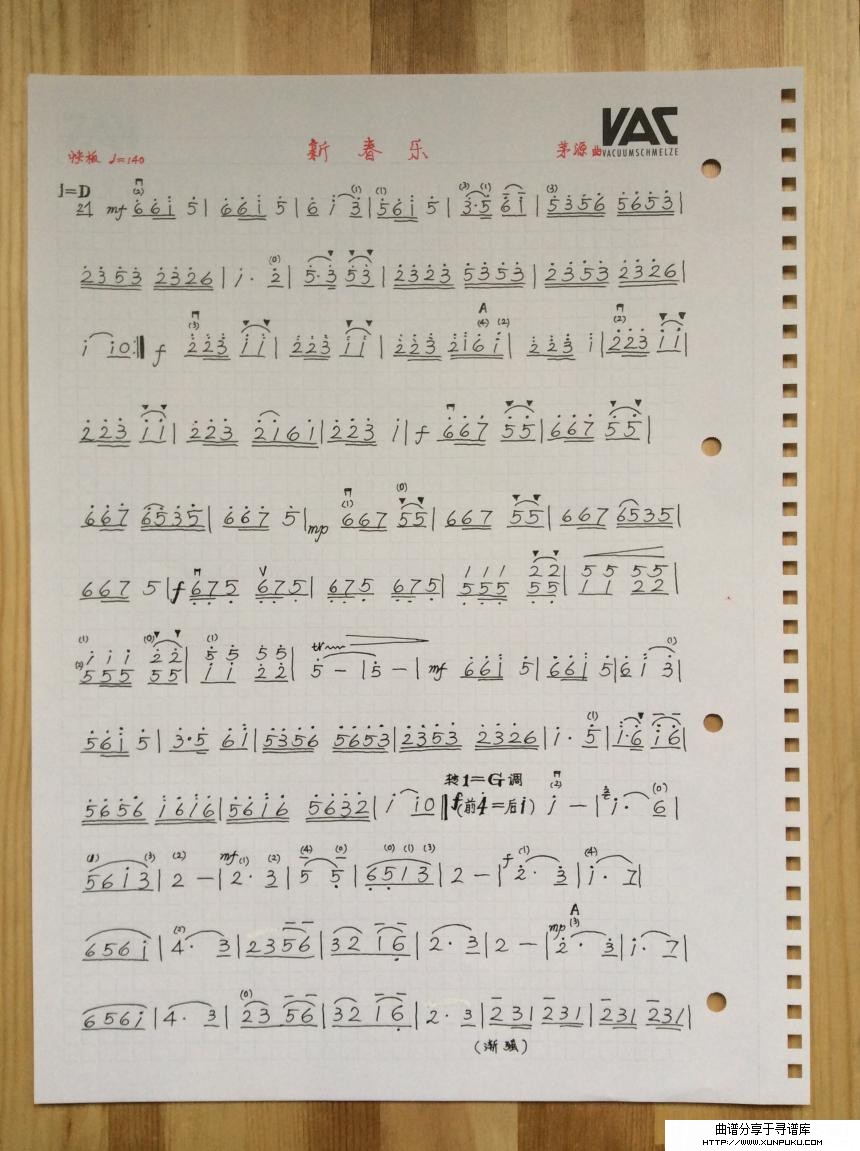 VAC
VACUUMSCHMELZE
快板 ♩=140 新春乐 茅源曲
1=D
2/4 mf 6 6 i 5 | 6 6 i 5 | 6 i 3 | 5 6 i 5 | 3·5 6 i | 5 3 5 6 5 6 5 3 |
2 3 5 3 2 3 2 6 | i · 2 | 5·3 5 3 | 2 3 2 3 5 3 5 3 | 2 3 5 3 2 3 2 6 |
i i 0 :‖ f 2 2 3 i i | 2 2 3 i i | 2 2 3 2 i 6 i | 2 2 3 i | 2 2 3 i i |
2 2 3 i i | 2 2 3 2 i 6 i | 2 2 3 i | f 6 6 7 5 5 | 6 6 7 5 5 |
6 6 7 6 5 3 5 | 6 6 7 5 | mp 6 6 7 5 5 | 6 6 7 5 5 | 6 6 7 6 5 3 5 |
6 6 7 5 | f 6 7 5 6 7 5 | 6 7 5 6 7 5 | 1 1 1 2 2 | 5 5 5 5
5 5 5 5 5 | 1 1 2 2 |
i i i 2 2 | 5 5 5 5
5 5 5 5 5 | i i 2 2 | tr 5 – | 5 – | mf 6 6 i 5 | 6 6 i 5 | 6 i 3 |
5 6 i 5 | 3·5 6 i | 5 3 5 6 5 6 5 3 | 2 3 5 3 2 3 2 6 | i · 5 | i·6 i 6 |
5 6 5 6 i 6 i 6 | 5 6 i 6 5 6 3 2 | i i 0 ‖ 转1=G调 f (前4=后i) i – | i · 6 |
5 6 i 3 | 2 – | mf 2 · 3 | 5 5 | 6 5 1 3 | 2 – | f 2 · 3 | i · 7 |
6 5 6 i | 4 · 3 | 2 3 5 6 | 3 2 1 6 | 2 · 3 | 2 – | mp A 2 · 3 | i · 7 |
6 5 6 i | 4 · 3 | 2 3 5 6 | 3 2 1 6 | 2 · 3 | 2 3 1 2 3 1 | 2 3 1 2 3 1 |
(渐强)
曲谱分享于寻谱库
HTTP://WWW.XUNPUKU.COM